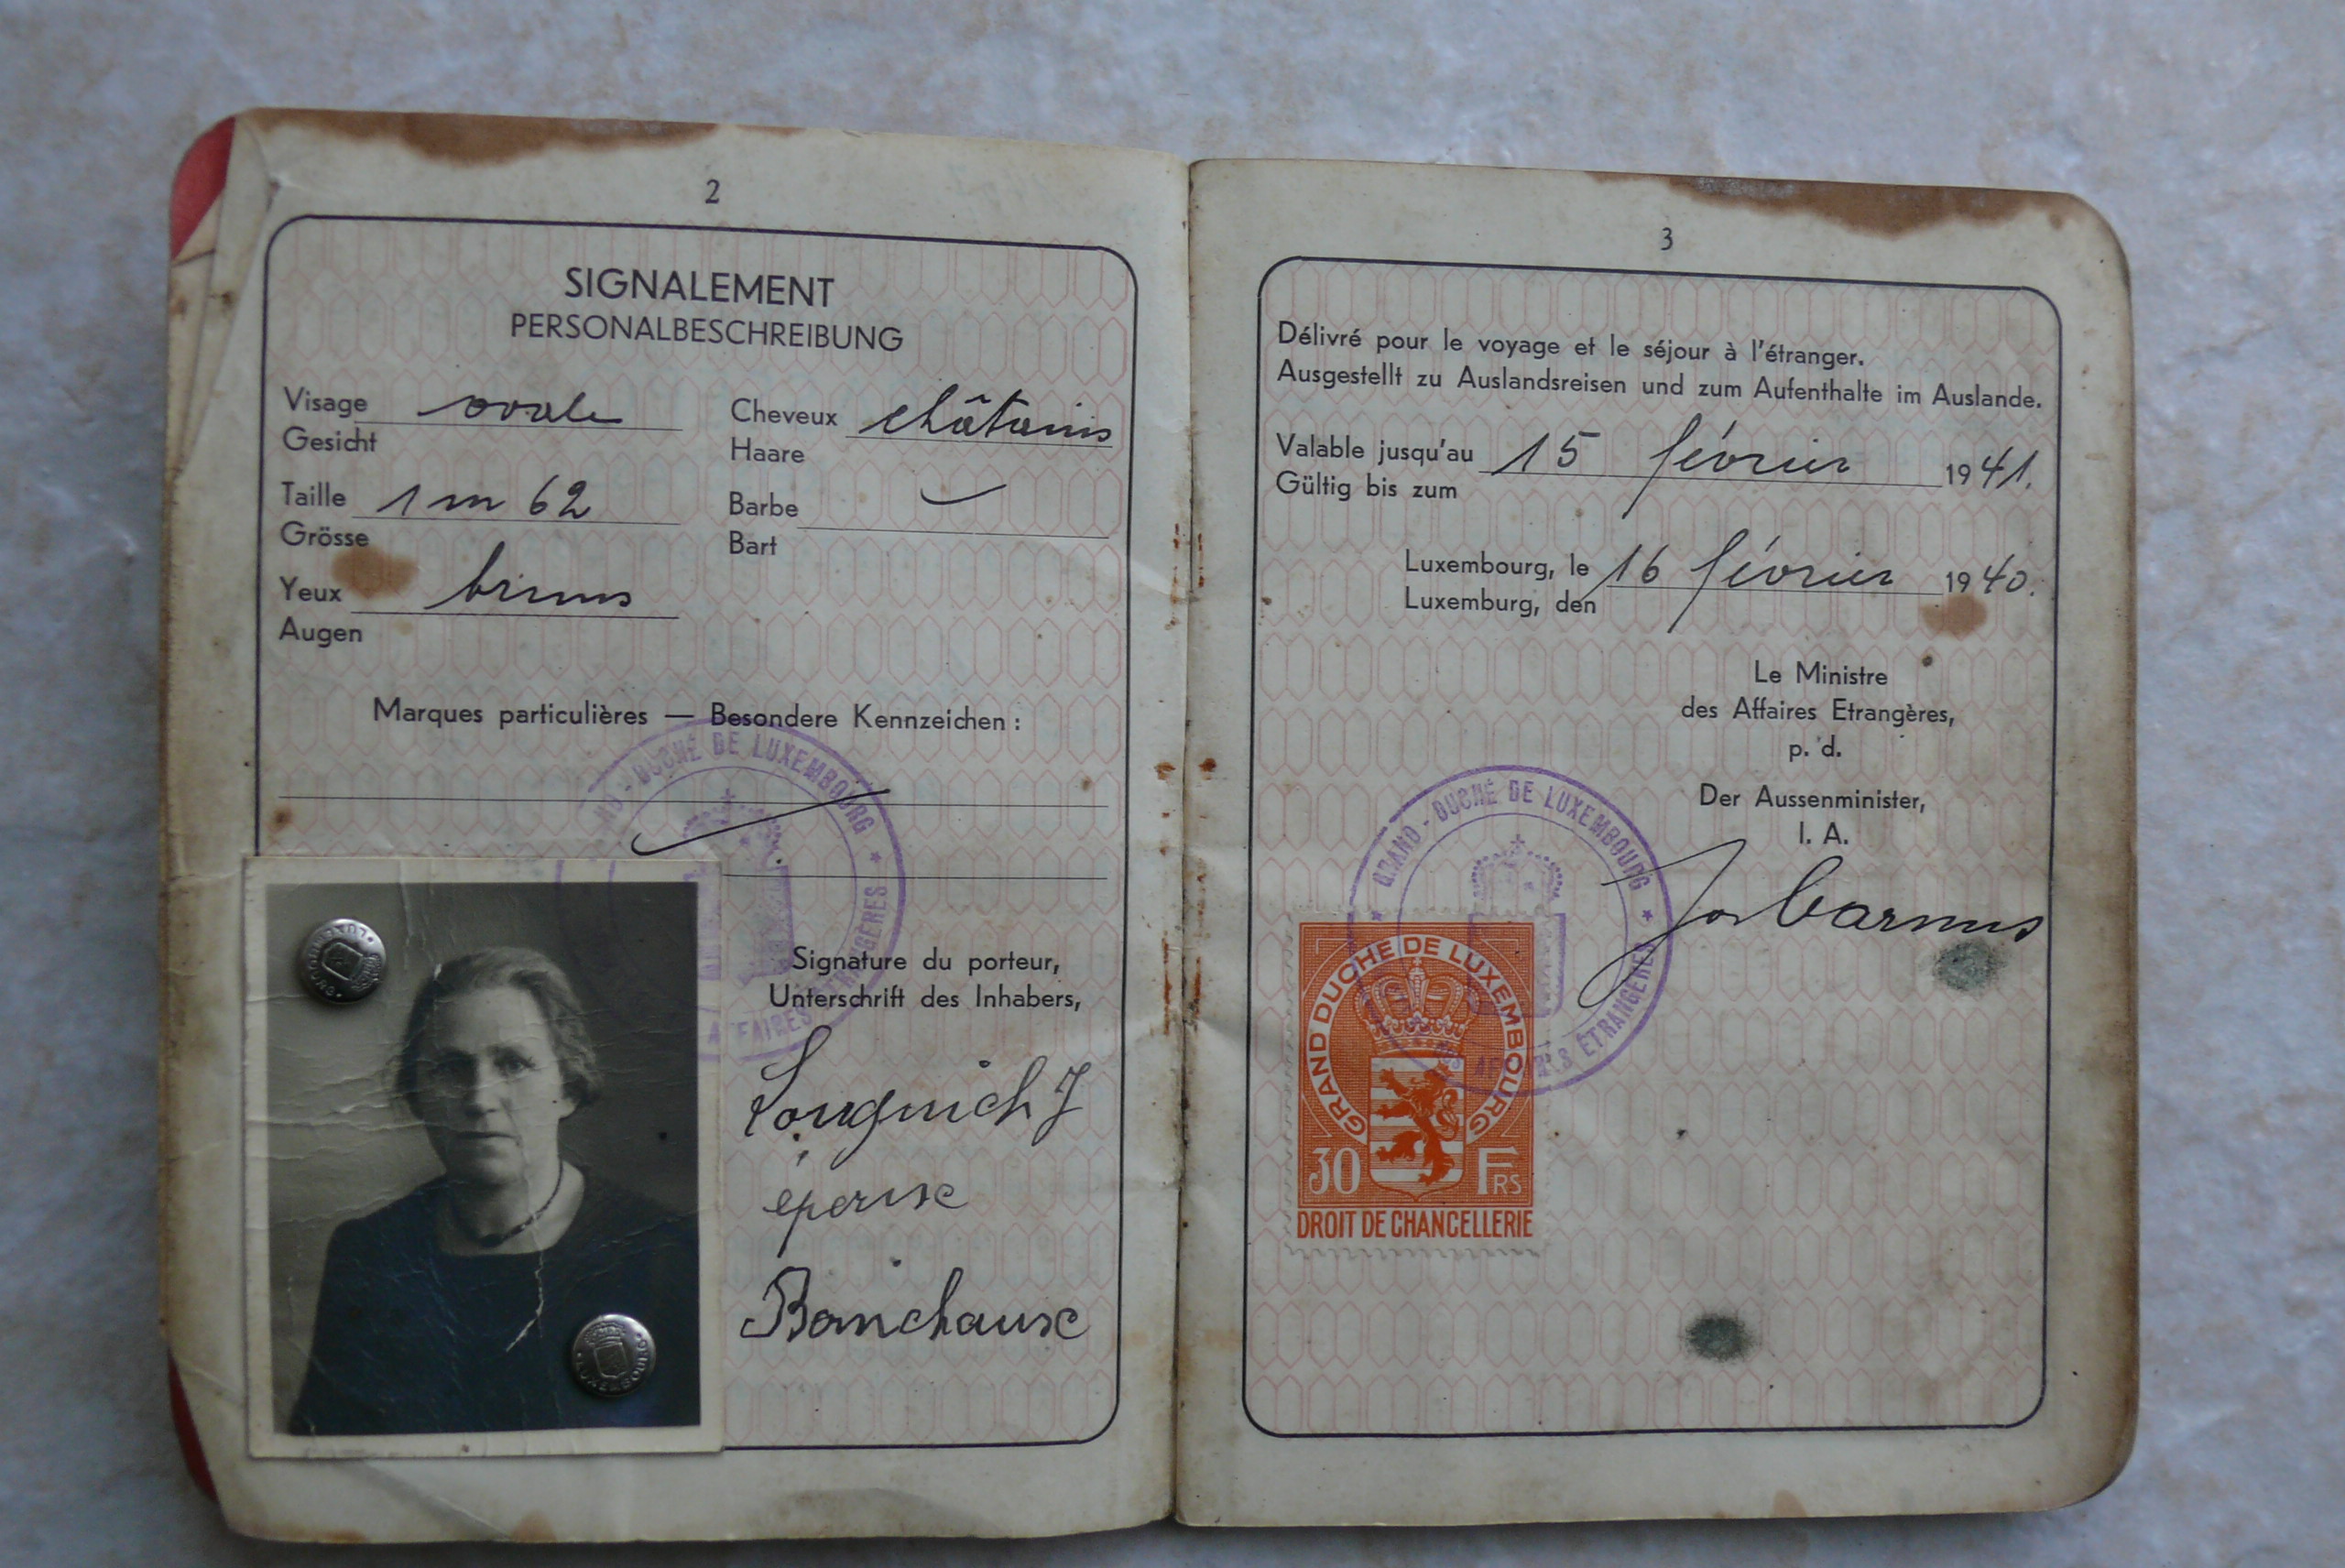 2
SIGNALEMENT
PERSONALBESCHREIBUNG
Visage ovale
Gesicht
Cheveux châtains
Haare
Taille 1 m 62
Grösse
Barbe
Bart
Yeux bruns
Augen
Marques particulières — Besondere Kennzeichen :
GRAND-DUCHÉ DE LUXEMBOURG
AFFAIRES ÉTRANGÈRES
LUXEMBOURG
Signature du porteur,
Unterschrift des Inhabers,
Longuich J
épouse
Banchause
LUXEMBOURG
3
Délivré pour le voyage et le séjour à l'étranger.
Ausgestellt zu Auslandsreisen und zum Aufenthalte im Auslande.
Valable jusqu'au 15 février 1941.
Gültig bis zum
Luxembourg, le 16 février 1940.
Luxemburg, den
Le Ministre
des Affaires Etrangères,
p. d.
Der Aussenminister,
I. A.
GRAND-DUCHÉ DE LUXEMBOURG
AFFAIRES ÉTRANGÈRES
GRAND DUCHE DE LUXEMBOURG
30 FRS
DROIT DE CHANCELLERIE